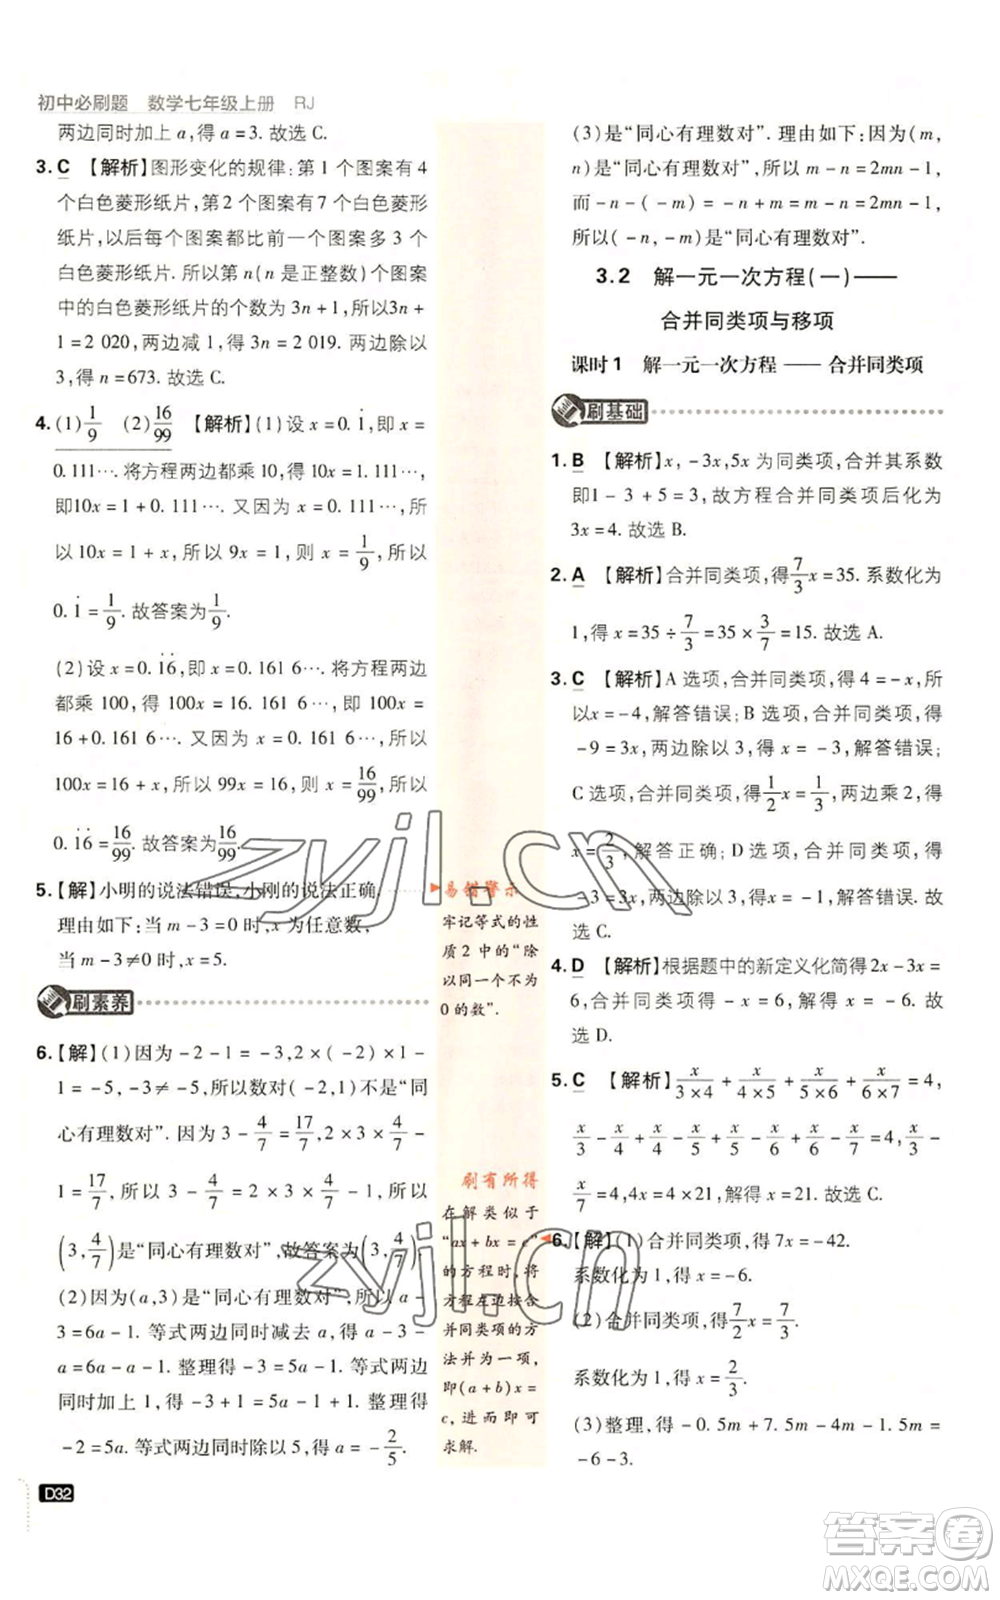 初中必刷题 数学七年级上册 RJ
两边同时加上 a,得 a=3. 故选 C.
3. C 【解析】图形变化的规律:第 1 个图案有 4
个白色菱形纸片,第 2 个图案有 7 个白色菱形
纸片,以后每个图案都比前一个图案多 3 个
白色菱形纸片. 所以第 n(n 是正整数)个图案
中的白色菱形纸片的个数为 3n+1,所以 3n+
1=2 020,两边减 1,得 3n=2 019. 两边除以
3,得 n=673. 故选 C.
4. (1) 1/9 (2) 16/99 【解析】(1)设 x=0.1̇,即 x=
0.111…. 将方程两边都乘 10,得 10x=1.11…,
即10x=1+0.111…. 又因为 x=0.111…,所
以 10x=1+x,所以 9x=1,则 x=1/9,所以
0.1̇=1/9. 故答案为1/9.
(2)设 x=0.1̇6̇,即 x=0.161 6…. 将方程两边
都乘 100,得 100x=16.161 6…,即 100x=
16+0.161 6…. 又因为 x=0.161 6…,所以
100x=16+x,所以 99x=16,则 x=16/99,所以
0.1̇6̇=16/99. 故答案为16/99.
5. 【解】小明的说法错误,小刚的说法正确.
理由如下:当 m-3=0 时,x 为任意数,
当 m-3≠0 时,x=5.
刷素养
6. 【解】(1)因为 -2-1=-3,2×(-2)×1-
1=-5,-3≠-5,所以数对(-2,1)不是“同
心有理数对”. 因为 3-4/7=17/7,2×3×4/7-
1=17/7,所以 3-4/7=2×3×4/7-1,所以
(3,4/7)是“同心有理数对”,故答案为(3,4/7).
(2)因为(a,3)是“同心有理数对”,所以 a-
3=6a-1. 等式两边同时减去 a,得 a-3-
a=6a-1-a. 整理得 -3=5a-1. 等式两边
同时加上 1,得 -3+1=5a-1+1. 整理得
-2=5a. 等式两边同时除以 5,得 a=-2/5.
D32
易错警示
牢记等式的性
质 2 中的“除
以同一个不为
0 的数”.
刷有所得
在解类似于
“ax+bx=c”
的方程时,将
方程左边按合
并同类项的方
法并为一项,
即(a+b)x=
c,进而即可
求解.
(3)是“同心有理数对”. 理由如下:因为(m,
n)是“同心有理数对”,所以 m-n=2mn-1,
而-n-(-m)=-n+m=m-n=2mn-1,
所以(-n,-m)是“同心有理数对”.
3.2 解一元一次方程(一)——
合并同类项与移项
课时1 解一元一次方程——合并同类项
刷基础
1. B 【解析】x,-3x,5x 为同类项,合并其系数
即1-3+5=3,故方程合并同类项后化为
3x=4. 故选 B.
2. A 【解析】合并同类项,得7/3x=35. 系数化为
1,得 x=35÷7/3=35×3/7=15. 故选 A.
3. C 【解析】A 选项,合并同类项得 4=-x,所
以x=-4,解答错误;B 选项,合并同类项,得
-9=3x,两边除以 3,得 x=-3,解答错误;
C 选项,合并同类项,得1/2x=1/3,两边乘 2,得
x=2/3,解答正确;D 选项,合并同类项,得
-3.5x=5,两边除以-3.5,得 x=-10/7. 故
选 C.
4. D 【解析】根据题中的新定义化简得 2x-3x=
6,合并同类项得-x=6,解得 x=-6. 故
选 D.
5. C 【解析】x/(3×4)+x/(4×5)+x/(5×6)+x/(6×7)=4,
x/3-x/4+x/4-x/5+x/5-x/6+x/6-x/7=4,x/3-
x/7=4,4x=4×21,解得 x=21. 故选 C.
6. 【解】(1)合并同类项,得 7x=-42.
系数化为 1,得 x=-6.
(2)合并同类项,得7/2x=7/3.
系数化为 1,得 x=2/3.
(3)整理,得 -0.5m+7.5m-4m-1.5m=
-3.6.
zyjl.cn
zyjl.cn
答案圈
MXQE.COM